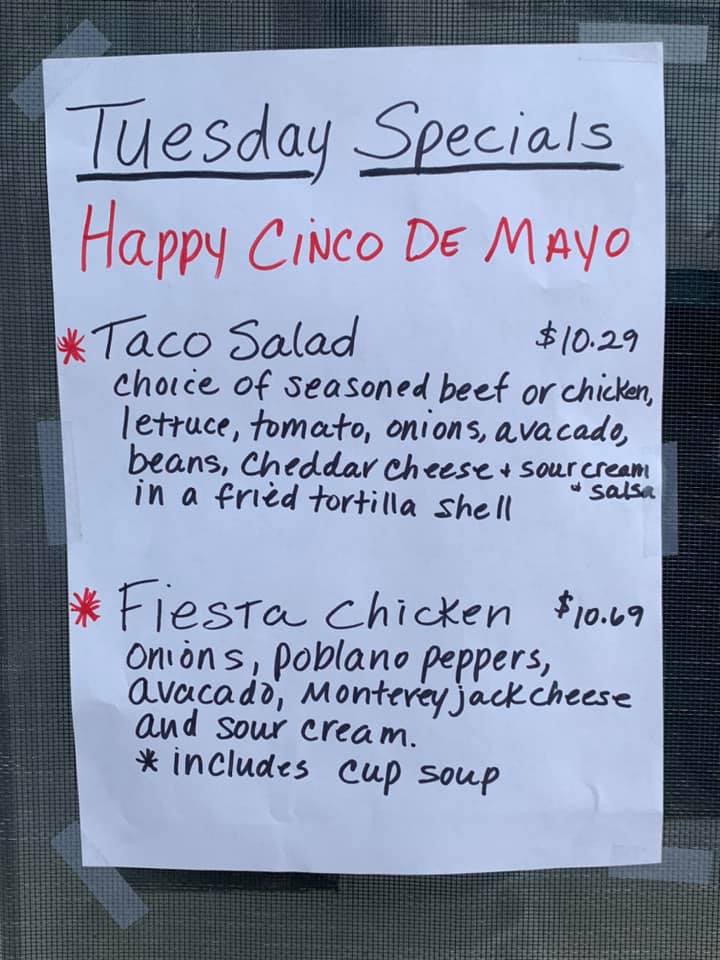 Tuesday Specials
Happy CINCO DE MAYO
* Taco Salad $10.29
choice of seasoned beef or chicken,
lettuce, tomato, onions, avacado,
beans, cheddar cheese + sour cream
in a fried tortilla shell + salsa
* Fiesta Chicken $10.69
onions, poblano peppers,
avacado, Monterey jack cheese
and sour cream.
* includes cup soup